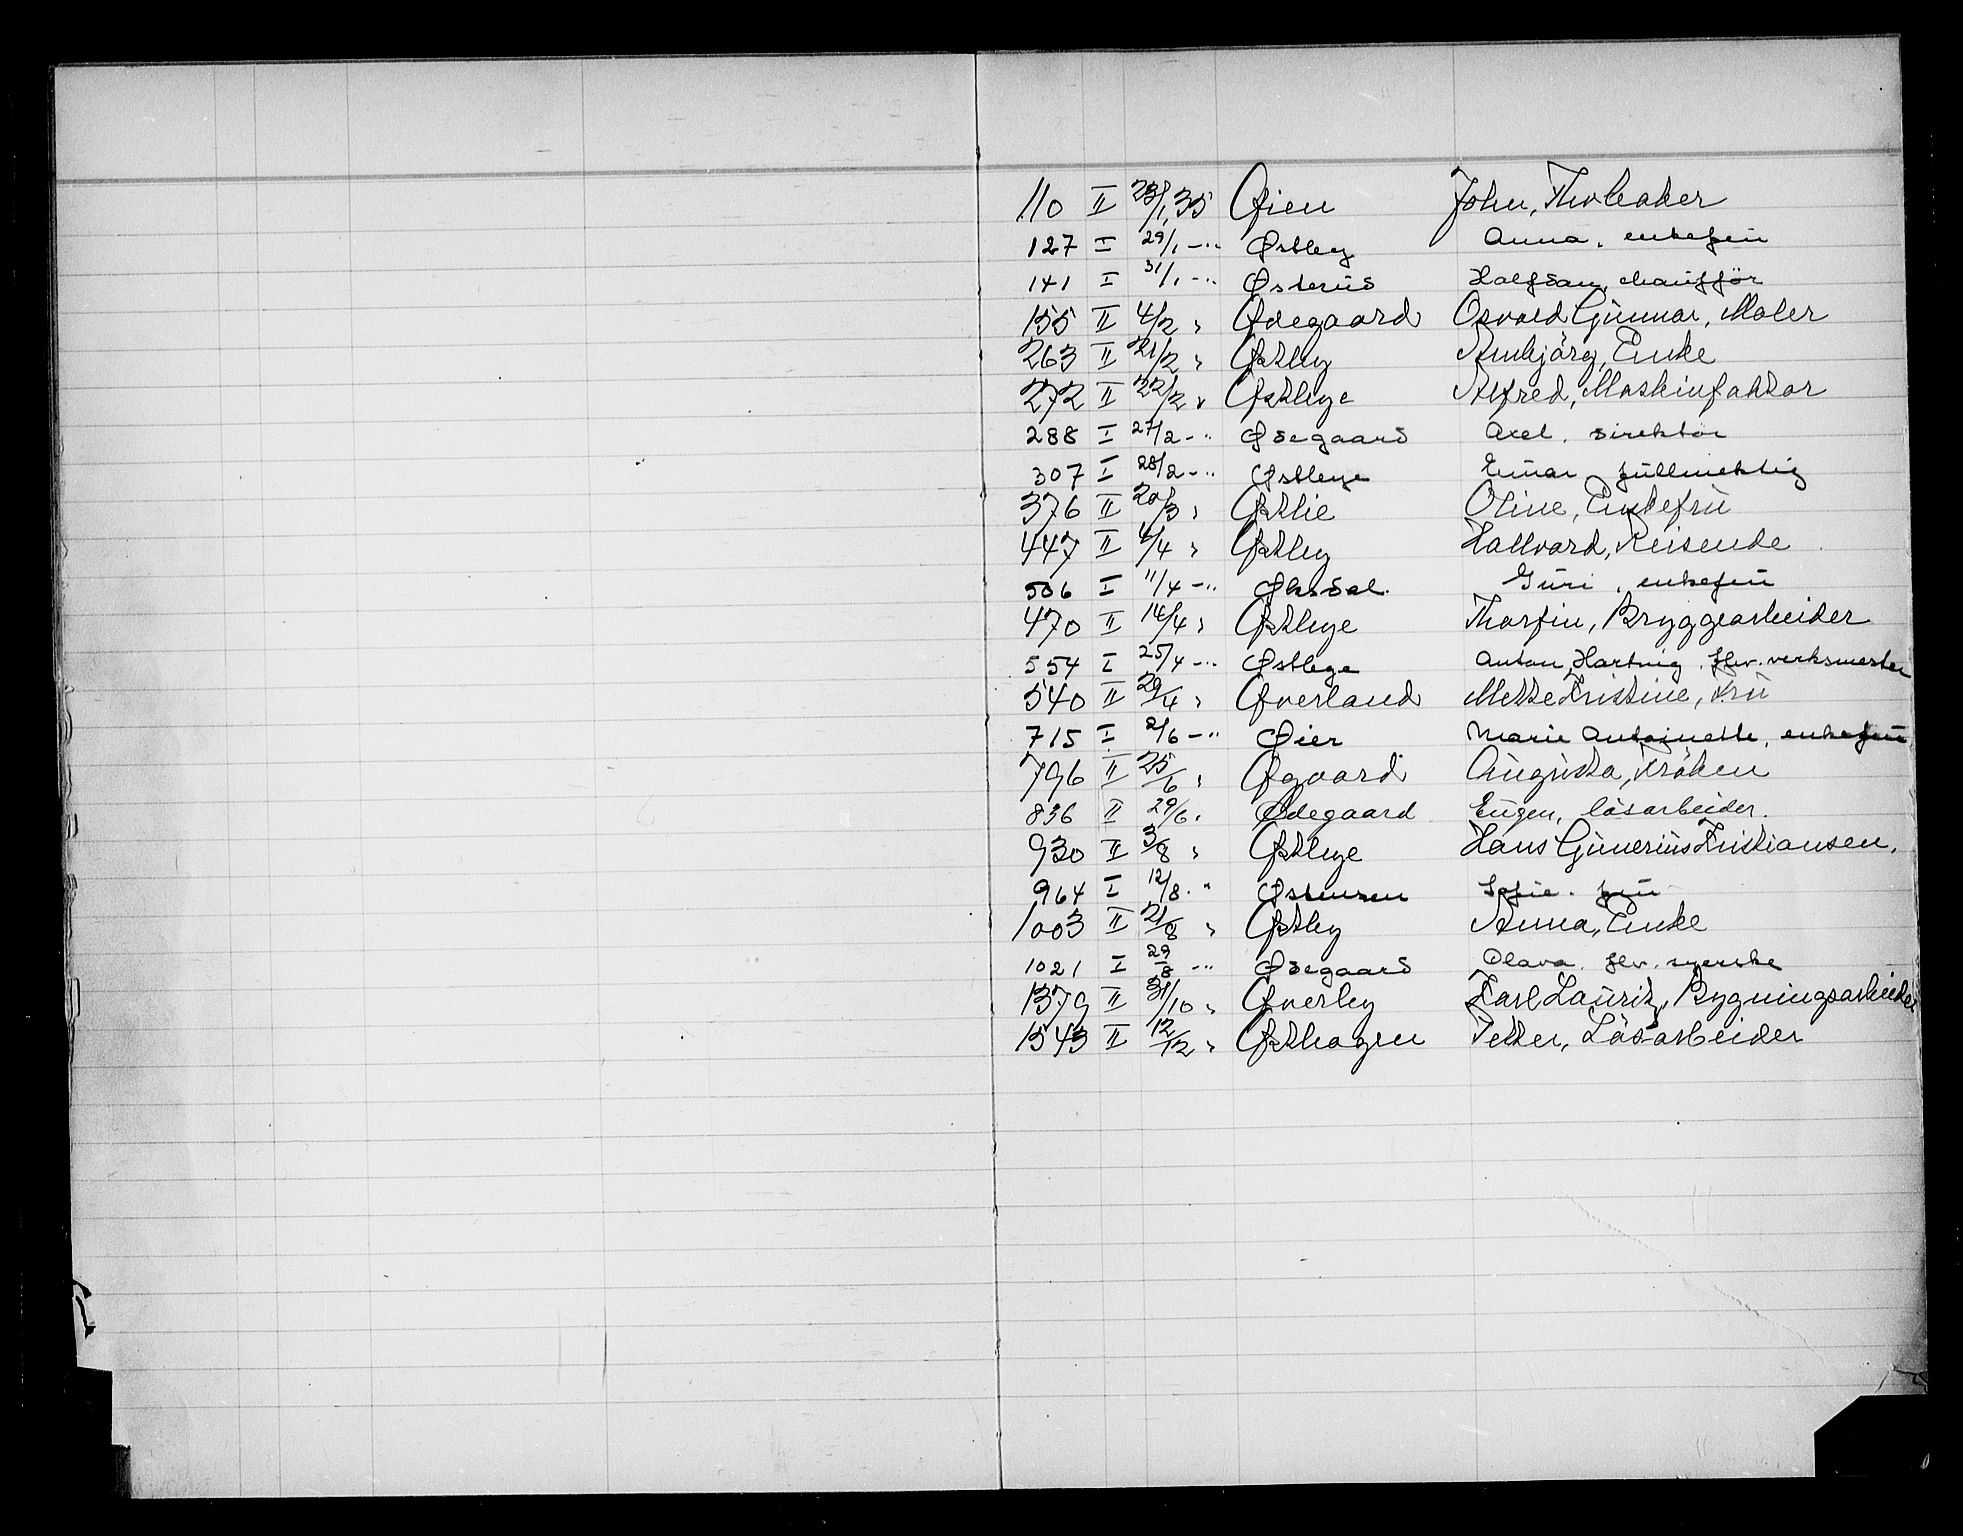 110 II 23/1 35 Øien John, Tho
127 I 29/1 -"- Østby Anna, enkefrü
141 I 31/1 -"- Østerüd Halfdan, chaufför
155 II 4/2 " Ødegaard Osvald Günnar, Maler
263 II 21/2 " Østby Arnbjörg, Enke
272 II 22/2 " Østbye Alfred, Maskinfaktor
288 I 27/2 -"- Ødegaard Axel, direktör
307 I 28/2 -"- Østbye Einar füllmektig
376 II 20/3 " Østlie Oline, Enkefrü
447 II 6/4 " Østby Hallvard, Reisende
506 I 11/4 -"- Øksdal Güri, enkefrü
470 II 14/4 " Østbye Thorfin, Bryggearbeider
554 I 25/4 -"- Østbye Anton Hartvig, fhv. verksmester
540 II 29/4 " Øverland Mette Kristine, Frü
715 I 2/6 -"- Øier Marie Antoinette, enkefrü
796 II 25/6 " Øgaard Augüsta, Fröken
836 II 29/6 " Ødegaard Eügen, lösarbeider.
930 II 3/8 " Østbye Hans Günerius Kristiansen,
964 I 12/8 " Østensen Sofie, frü
1003 II 21/8 " Østby Anna, Enke
1021 I 29/8 -"- Ødegaard Olava, fhv. syerske
1379 II 31/10 " Øverby Karl Lauritz, Bygningsarbeider
1543 II 12/12 " Østhagen Petter, Lösarbeider